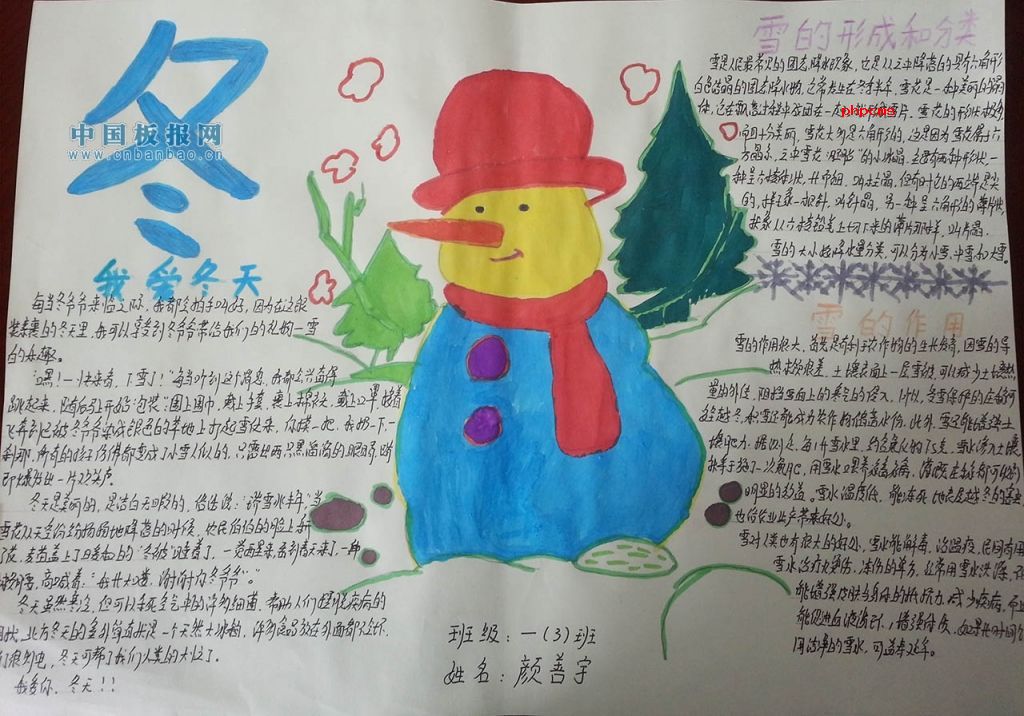 冬
中国板报网
www.cnbanbao.cn
我爱冬天
每当冬爷爷来临之际，我都会拍手叫好，因为在这银
装素裹的冬天里，我可以享受到冬爷爷带给我们的礼物一雪
的乐趣。
“嘿！快来看，下雪了！”每当听到这个消息，我都会兴奋得
跳起来，随后
飞奔到已被冬爷爷染成银色的草地上打起雪仗来，你摸一把，我扔一下，一
刹那，所有的孩子仿佛都变成了小雪人似的，只露出两只黑溜溜的眼睛，随
即爆发出一片欢笑声。
冬天是美丽的，是洁白无瑕的，俗话说：“瑞雪兆丰年”，当
雪花从天空纷纷扬扬地降落的时候，农民伯伯的脸上乐开
了花，麦苗盖上了白色的“冬被”睡着了，一觉醒来，看到春天来了，
高喊着：“我长大喽，谢谢您冬爷爷”。
冬天虽然寒冷，但可以杀死空气中的许多细菌，帮助人们摆脱疾病的
困扰，北方冬天的室外简直就是一个天然大冰箱，许多食品放在外面都不会坏，
冬天可帮了我们人类的大忙了。
我爱你，冬天！！
雪的形成和分类
雪是人们最常见的固态降水现象，也是从云中降落的具有六角形
白色结晶的固态降水物，通常发生在冬季半年，雪花是一种美丽的结晶
体，它在飘落过程中成团在一起，就形成雪片，雪花的形状极多，
phpcms
而且十分美丽，雪花大多是六角形的，这是因为雪花属于六
方晶系，云中雪花“胚胎”的小冰晶，主要有两种形状，一
种呈六棱柱状，叫柱晶，但有时它的两端是尖
的，样子像一根针，叫针晶，另一种呈六角形的薄片状，
就像从六棱铅笔上切下来的薄片那样，叫片晶。
雪的大小按降水量分类，可以分为小雪，中雪和大雪。
雪的作用
雪的作用很大，首先是有利于农作物的生长发育，因雪的导
热本领很差，土壤表面上一层雪被，可以减少土壤热
量的外传，阻挡雪面上的寒气的侵入，所以，受雪保护的庄稼可
安全越冬，积雪还能为农作物储蓄水份，此外，雪还能增强土
壤肥力，
施了一次氮肥，用雪水
明显的效益。雪水温度低，能冻死地表层越冬的害虫
也给农业生产带来好处。
雪对人类也有很大的好处，雪水能解毒，治瘟疫，民间有用
雪水治疗火烫伤，冻伤的单方，经常用雪水洗澡，不
能增强皮肤与身体的抵抗力，减少疾病，而且
能促进血液循环，增强体质，如果长时间饮
用洁净的雪水，可益寿延年。
班级：一（3）班
姓名：颜善宇